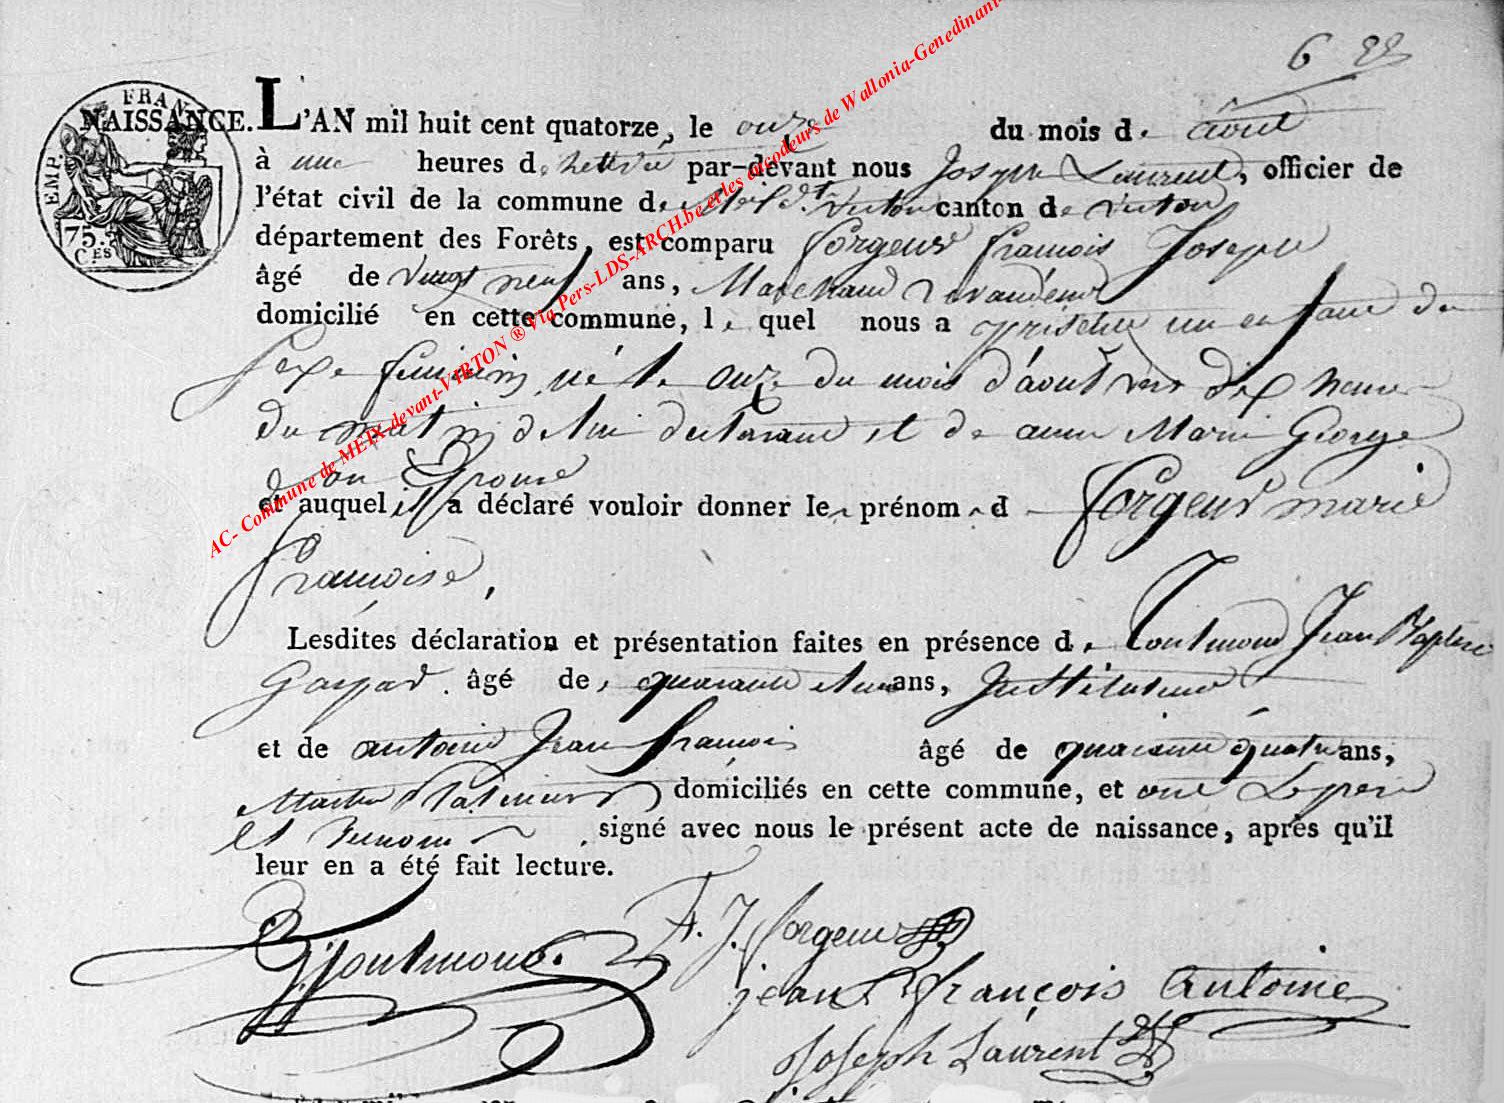 6
FRAN
EMP.
75.
CES
NAISSANCE. L'AN mil huit cent quatorze, le onze du mois de août
à une heures de relevée par-devant nous Joseph Laurent, officier de
l'état civil de la commune de Meix dt Virton canton de Virton
département des Forêts, est comparu Forgeur François Joseph
âgé de vingt neuf ans, Marchand
domicilié en cette commune, lequel nous a présenté un enfant du
sexe féminin né le onze du mois d'août vers dix heures
du matin de lui déclarant et de Marie George
son Epouse
et auquel il a déclaré vouloir donner les prénoms d Forgeur marie
françoise,
Lesdites déclaration et présentation faites en présence de Toutmond Jean Baptiste
Gaspard. âgé de quarante et un ans, Instituteur
et de antoine Jean françois âgé de quarante quatre ans,
domiciliés en cette commune, et ont Le père
et témoins signé avec nous le présent acte de naissance, après qu'il
leur en a été fait lecture.
Toutmond.
F. J. Forgeur
jean françois Antoine
Joseph Laurent
AC- Commune de MEIX-devant-VIRTON ® Via Pers-LDS-ARCH.be et les encodeurs de Wallonia-Genedinant